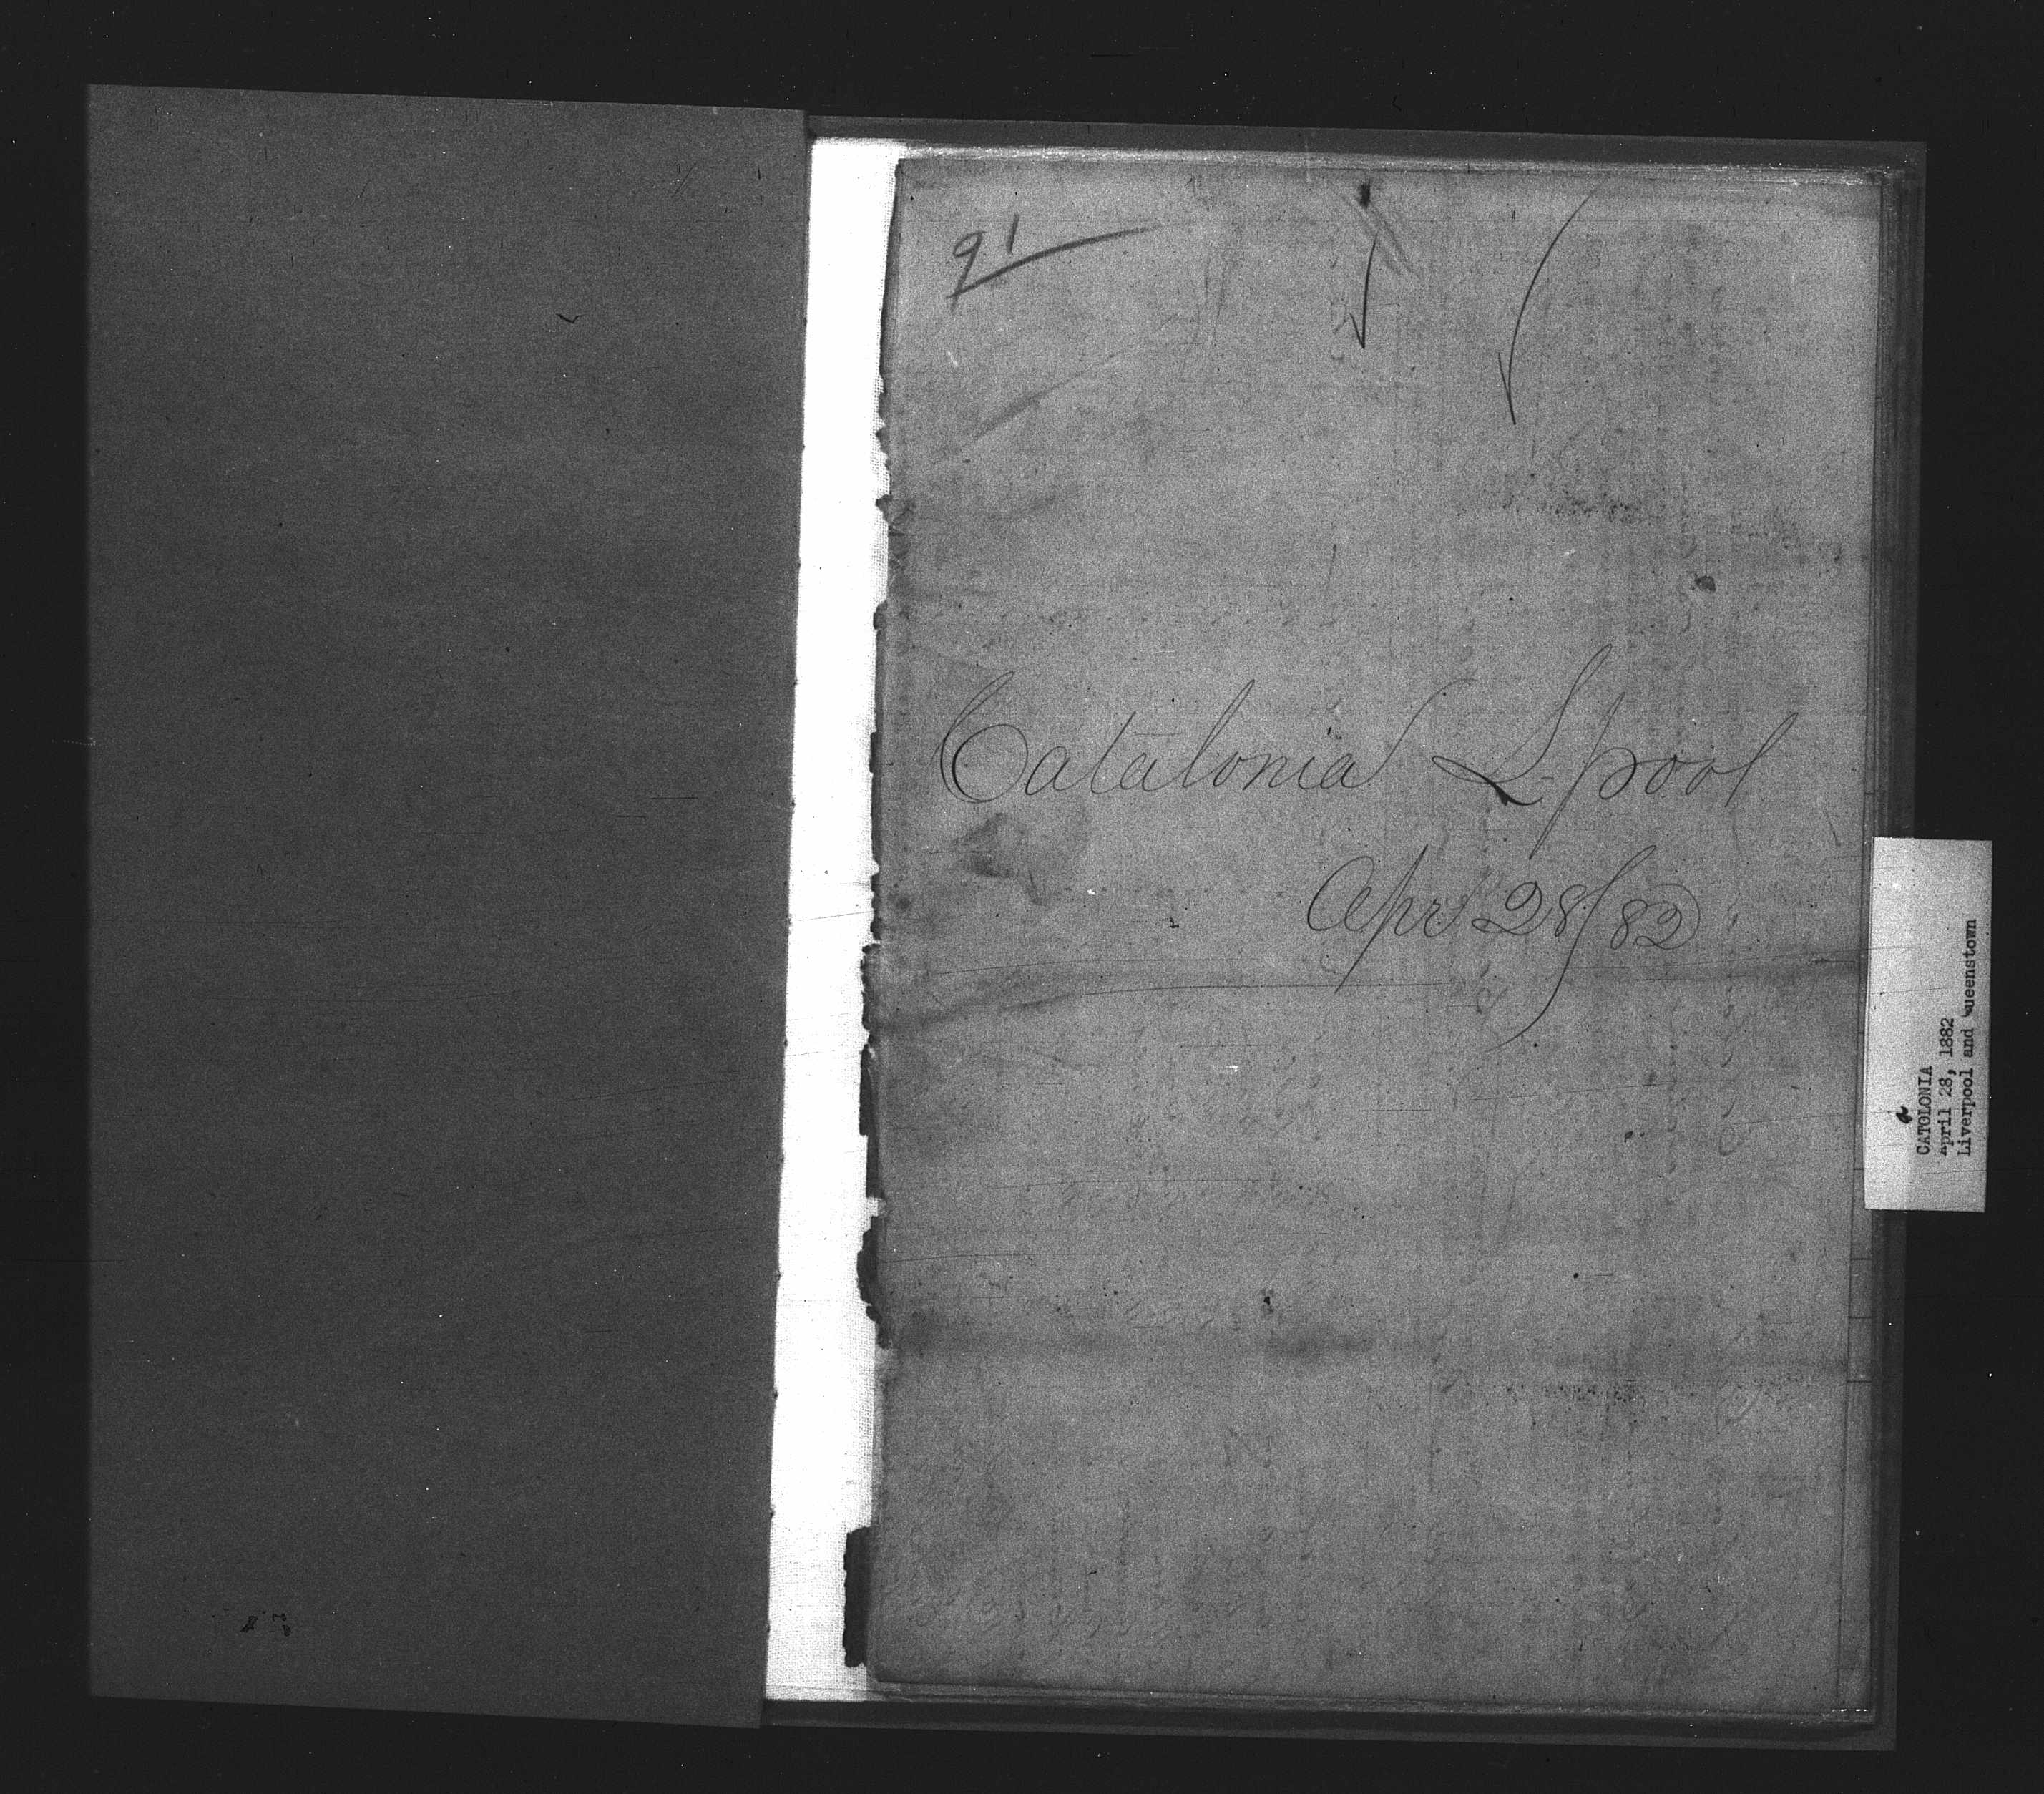 91
Catalonia L-pool
Apr 28/82
a
CATOLONIA
April 28, 1882
Liverpool and Queenstown